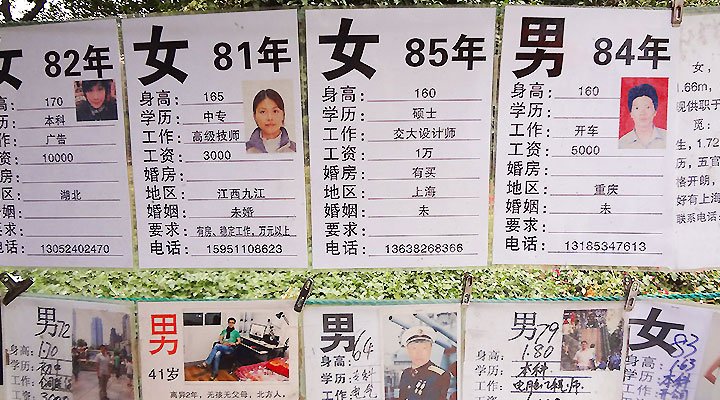 女 82年
身高: 170
学历: 本科
工作: 广告
工资: 10000
婚房:
地区: 湖北
婚姻:
要求:
电话: 13052402470
女 81年
身高: 165
学历: 中专
工作: 高级技师
工资: 3000
婚房:
地区: 江西九江
婚姻: 未婚
要求: 有房、稳定工作,万元以上
电话: 15951108623
女 85年
身高: 160
学历: 硕士
工作: 交大设计师
工资: 1万
婚房: 有买
地区: 上海
婚姻: 未
要求:
电话: 13638268366
男 84年
身高: 160
学历:
工作: 开车
工资: 5000
婚房:
地区: 重庆
婚姻: 未
要求:
电话: 13185347613
女,
1.66m,
现供职于
觅:
生, 1.72
历, 五官
格开朗,
好有上海
联系电话:
男 72
身高: 1.70
学历: 初中
工作:
男
41岁
离异2年, 无孩无父母, 北方人。
男 64
身高:
学历:
工作:
男 79
身高: 1.80
学历: 本科
工作: 电脑工程师
女 83
身高: 1.63
学历: 本科
工作: